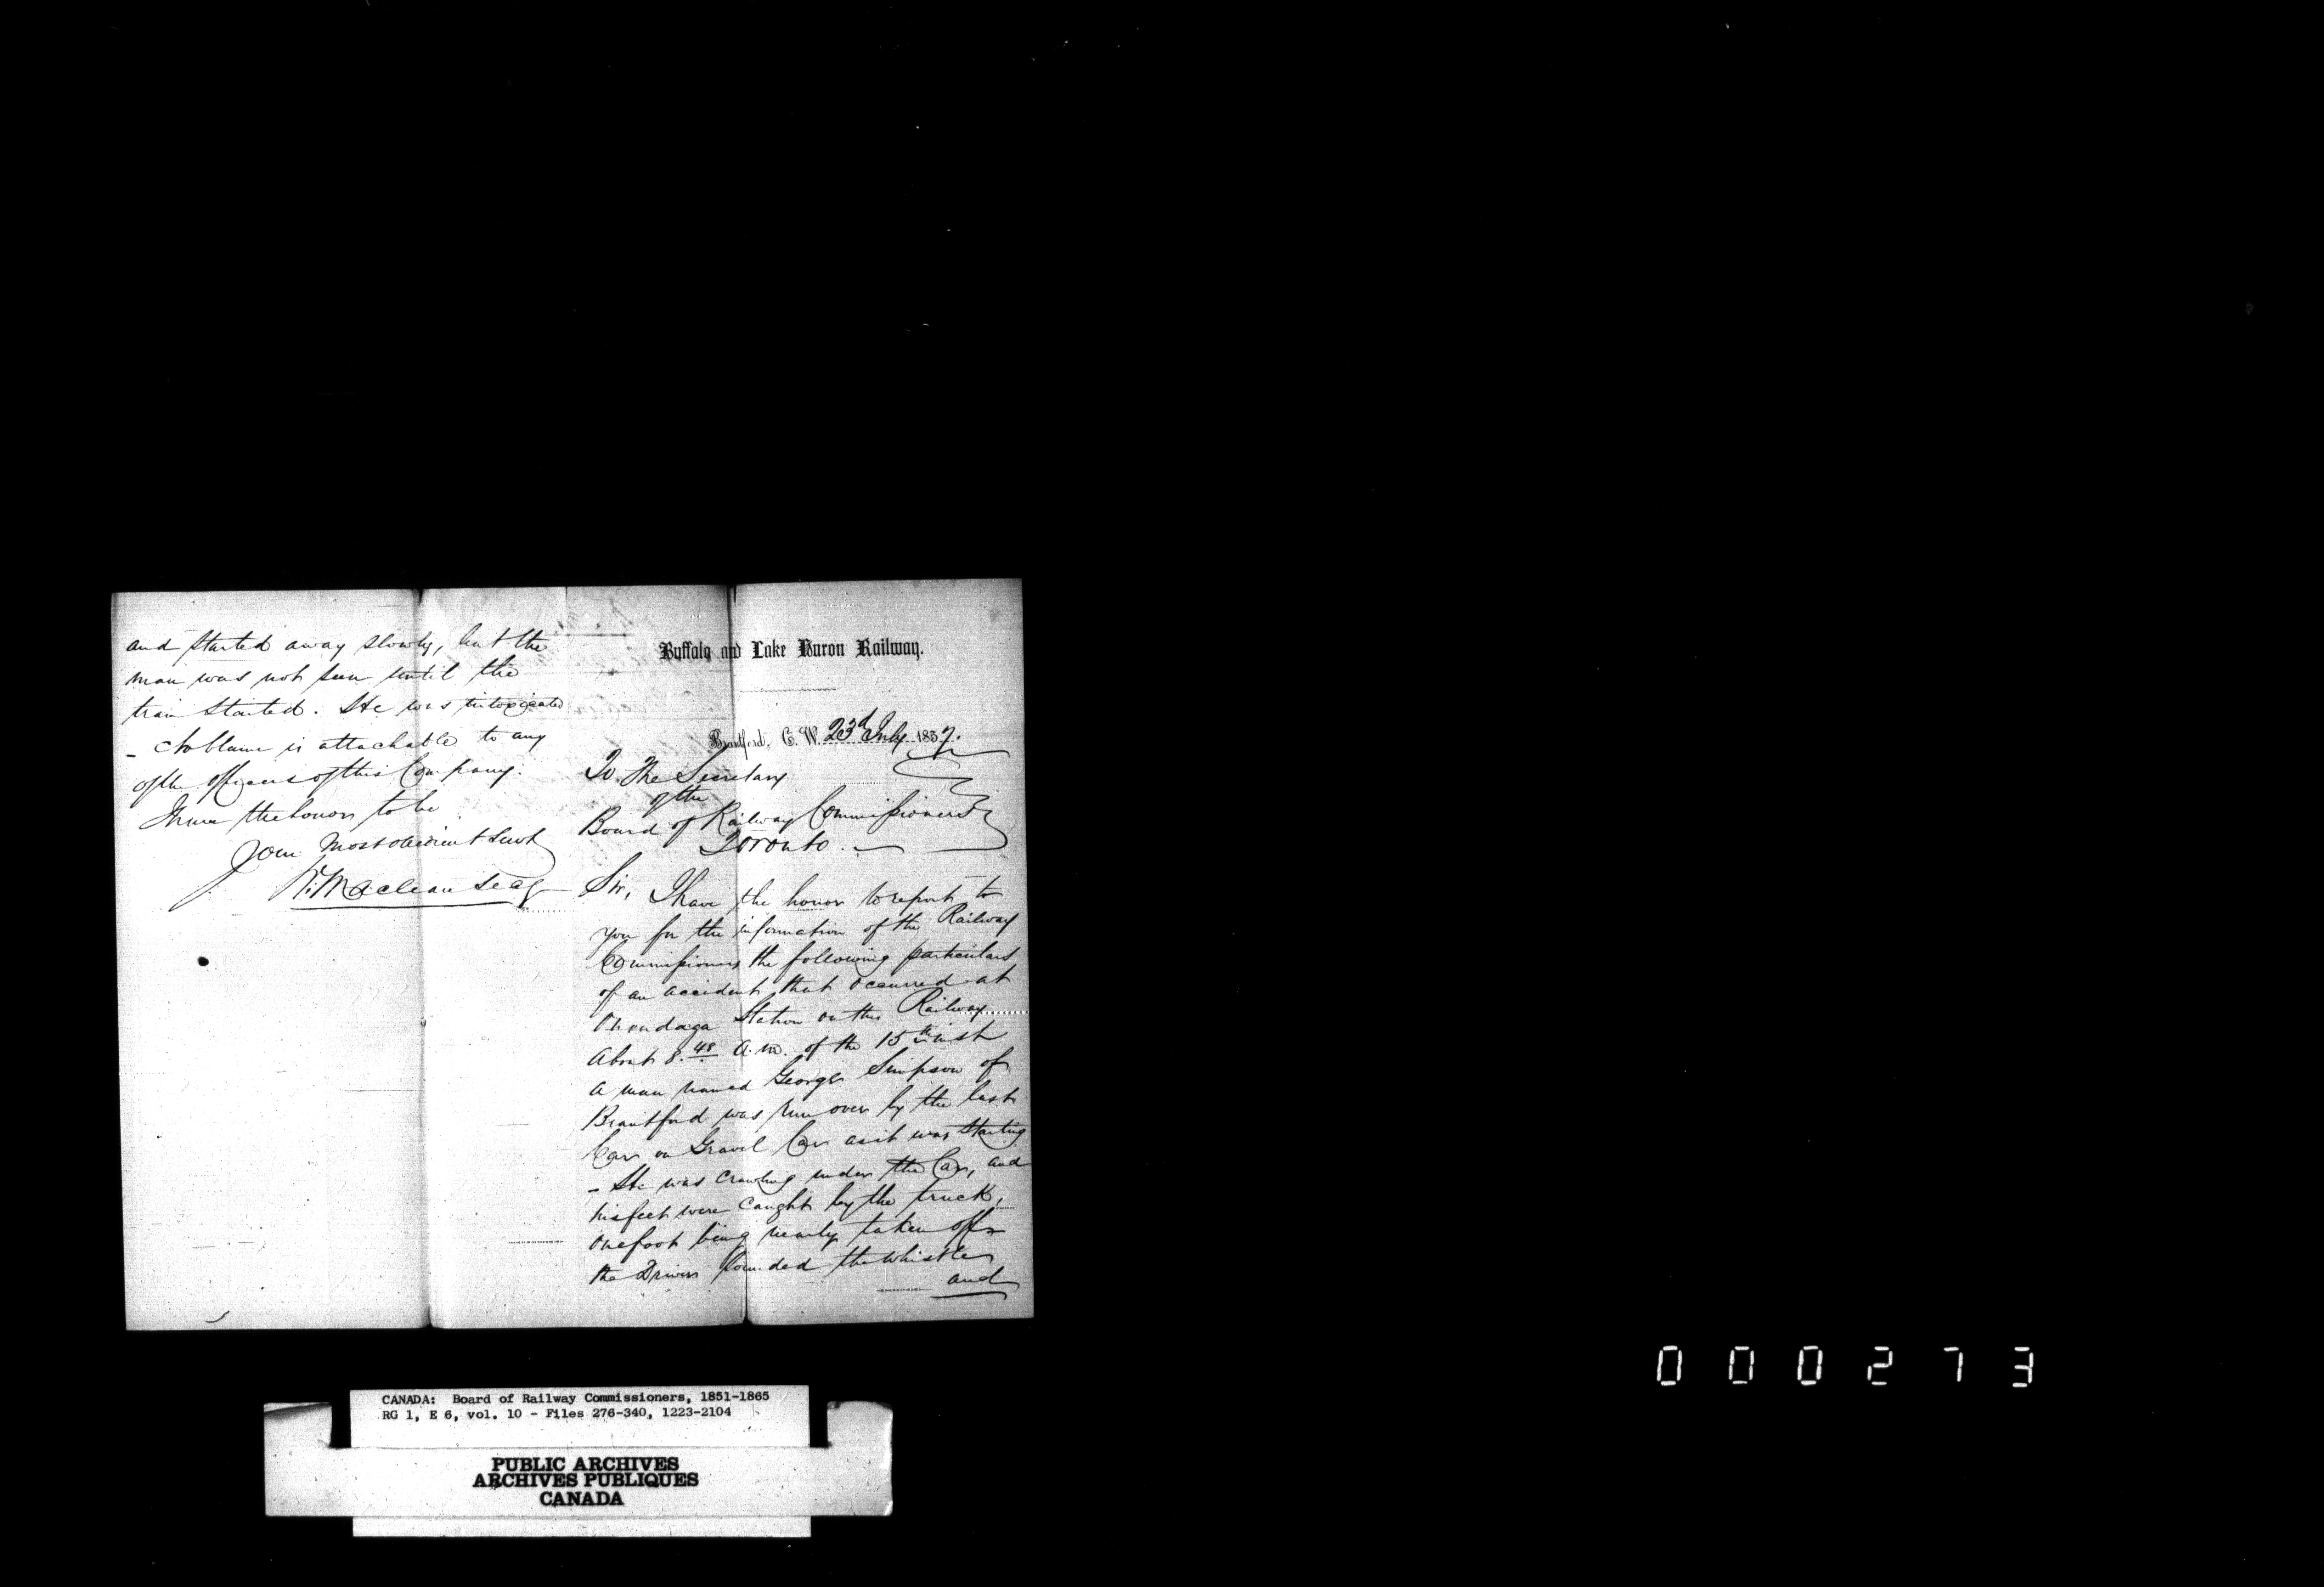 Buffalo and Lake Huron Railway.
Brantford, C. W. 23d July 1857.
To The Secretary
of the
Board of Railway Commissioners
Toronto.
Sir, I have the honor to report to
you for the information of the Railway
Commissioners the following particulars
of an accident that occurred at
Onondaga Station on this Railway
About 8.48 a.m. of the 15th inst
a man named George Simpson of
Brantford was run over by the last
Car on Gravel Car as it was starting
- He was crawling under the Car, and
his feet were caught by the truck,
one foot being nearly taken off
the Driver sounded the whistle
and
and started away slowly, but the
man was not seen until the
train started. He was intoxicated
- No blame is attachable to any
of the officers of this Company.
I have the honor to be
Your Most obedient Servt
Maclean Secy
CANADA: Board of Railway Commissioners, 1851-1865
RG 1, E 6, vol. 10 - Files 276-340, 1223-2104
PUBLIC ARCHIVES
ARCHIVES PUBLIQUES
CANADA
000273